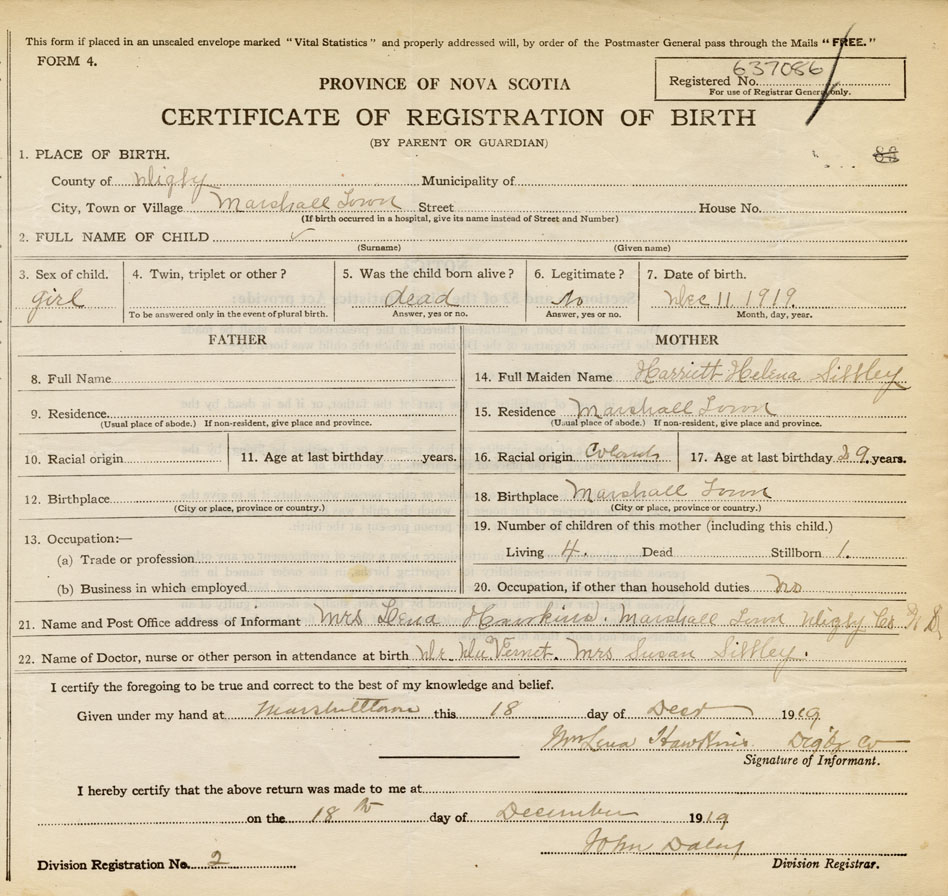 This form if placed in an unsealed envelope marked "Vital Statistics" and properly addressed will, by order of the Postmaster General pass through the Mails "FREE."
FORM 4.
637086
Registered No.
For use of Registrar General only.
PROVINCE OF NOVA SCOTIA
CERTIFICATE OF REGISTRATION OF BIRTH
(BY PARENT OR GUARDIAN)
1. PLACE OF BIRTH.
County of Digby Municipality of
City, Town or Village Marshall Town Street House No.
(If birth occurred in a hospital, give its name instead of Street and Number)
2. FULL NAME OF CHILD
(Surname) (Given name)
3. Sex of child. 4. Twin, triplet or other? 5. Was the child born alive? 6. Legitimate? 7. Date of birth.
girl dead No Dec 11 1919
To be answered only in the event of plural birth. Answer, yes or no. Answer, yes or no. Month, day, year.
FATHER MOTHER
8. Full Name 14. Full Maiden Name Harriett Helena Siffley
9. Residence 15. Residence Marshall Town
(Usual place of abode.) If non-resident, give place and province. (Usual place of abode.) If non-resident, give place and province.
10. Racial origin 11. Age at last birthday years. 16. Racial origin 17. Age at last birthday 39 years.
12. Birthplace 18. Birthplace Marshall Town
(City or place, province or country.) (City or place, province or country.)
13. Occupation:— 19. Number of children of this mother (including this child.)
(a) Trade or profession Living 4. Dead Stillborn 1.
(b) Business in which employed 20. Occupation, if other than household duties no
21. Name and Post Office address of Informant Mrs Lena Hawkins. Marshall Town Digby Co
22. Name of Doctor, nurse or other person in attendance at birth Dr. Du Vernet. Mrs Susan Siffley.
I certify the foregoing to be true and correct to the best of my knowledge and belief.
Given under my hand at Marshalltown this 18 day of Dect 1919
Mrs Lena Hawkins Digby Co
Signature of Informant.
I hereby certify that the above return was made to me at
on the 18th day of December 1919
John Daley
Division Registration No. 2 Division Registrar.